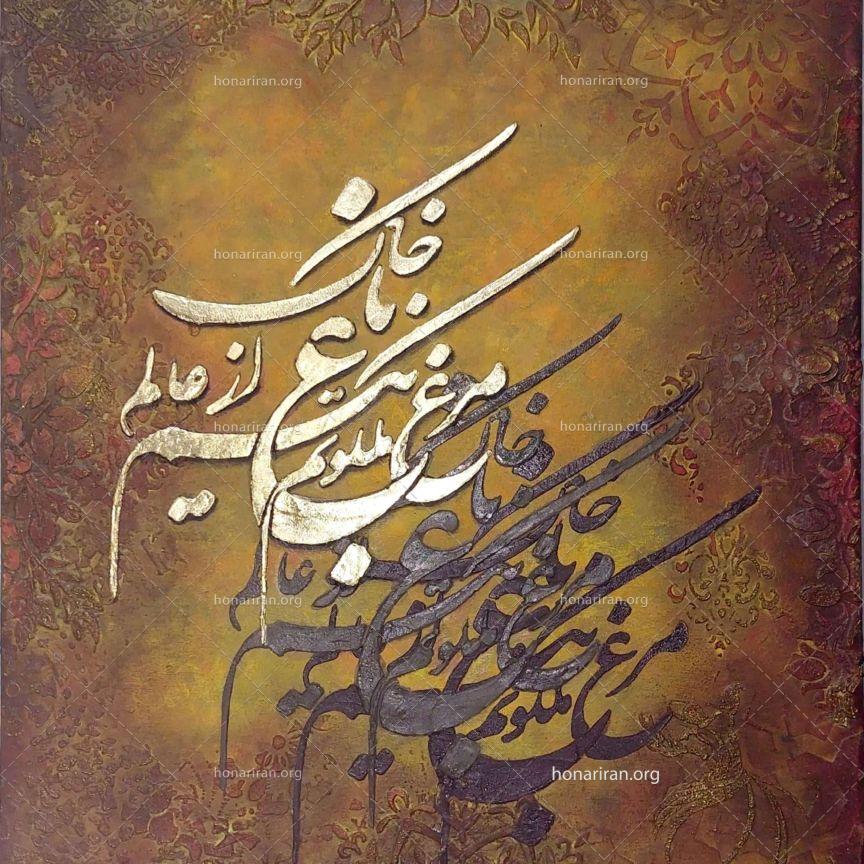 honariran.org honariran.org
honariran.org honariran.org
مرغ باغ ملکوتم نیم از عالم خاک
honariran.org honariran.org
honariran.org honariran.org
honariran.org honariran.org